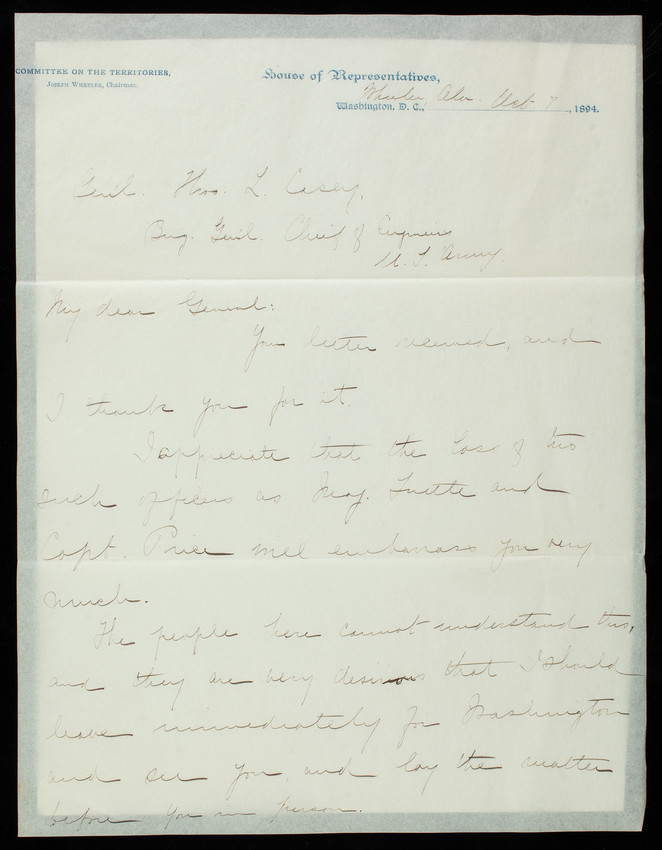 COMMITTEE ON THE TERRITORIES,
JOSEPH WHEELER, Chairman.
House of Representatives,
Wheeler, Ala. Oct 7
Washington, D. C., , 1894.
Genl. Thos. L. Casey,
Brig. Genl. Chief of Engineers
U. S. Army.
My dear General:
Your letter received, and
I thank you for it.
I appreciate that the loss of two
such officers as Maj. and
Capt. Price will embarrass you very
much.
The people here cannot understand this,
and they are very desirous that I should
leave immediately for Washington
and see you, and lay the matter
before you in person.